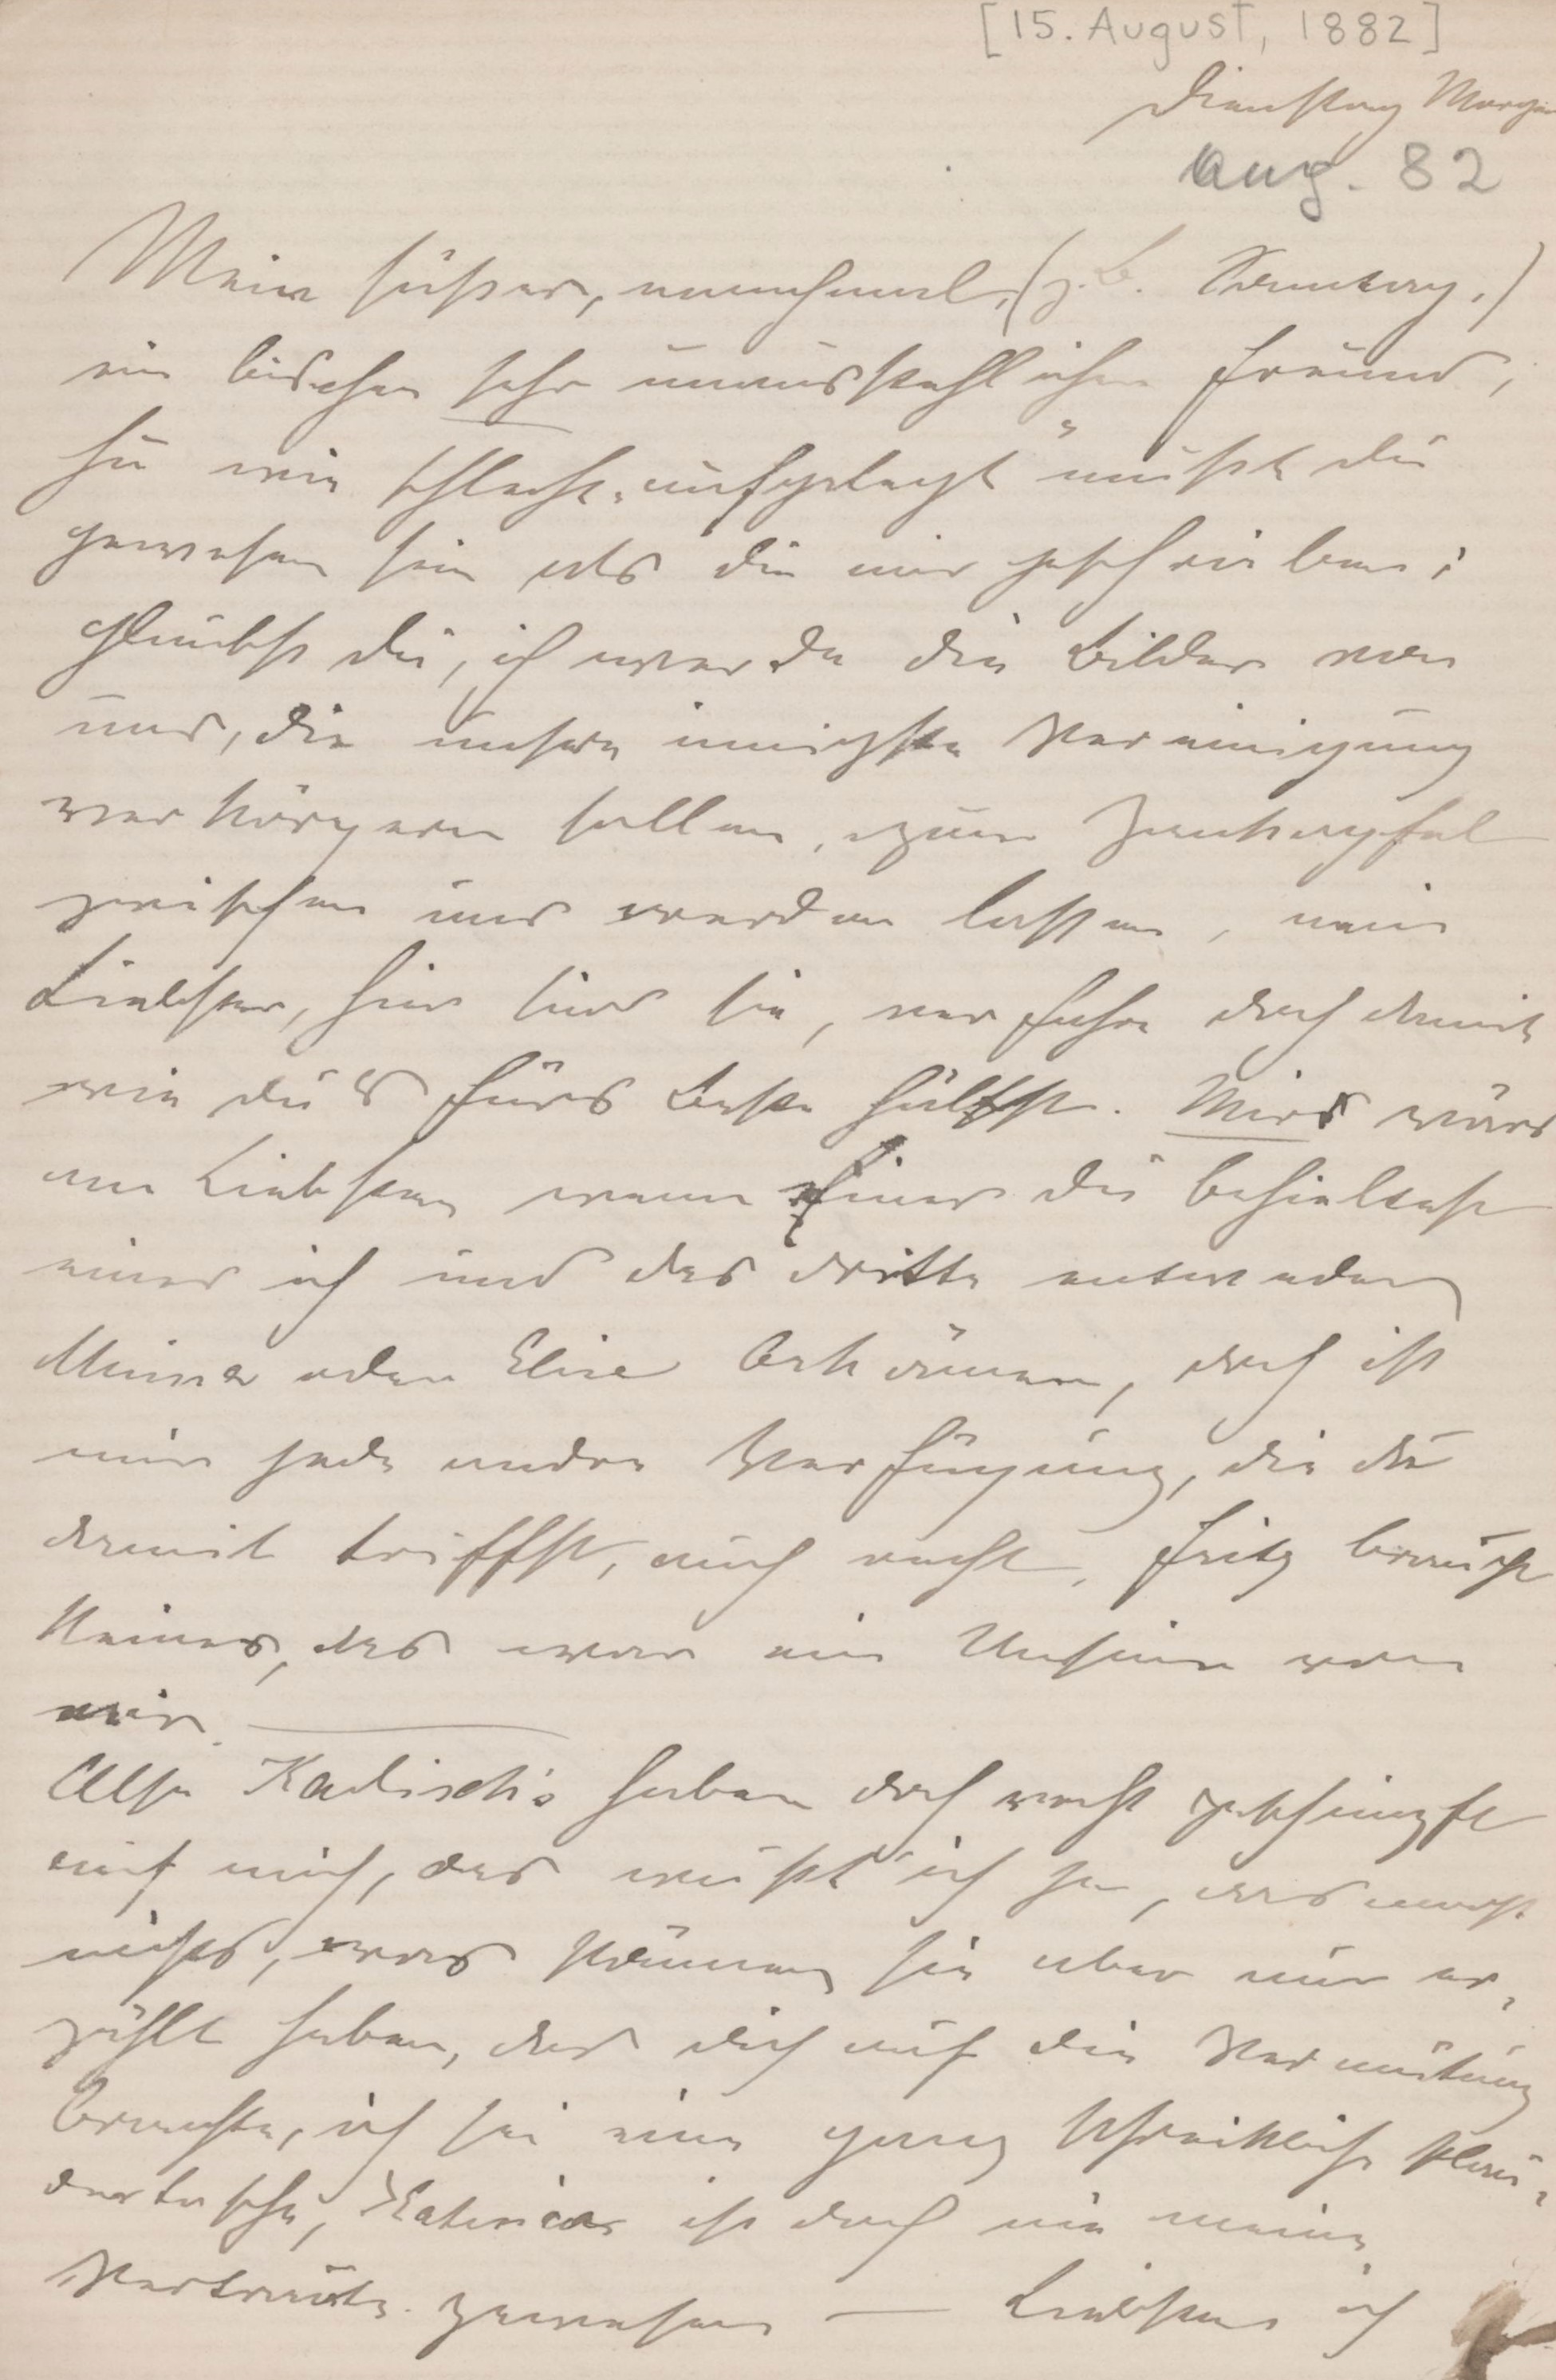 [15. August, 1882]
Dienstag Morgen
Aug. 82
Mein süßer, manchmal, (z. B. Sonntag,)
ein bischen sehr unausstehlicher Freund,
Hu wie schlecht aufgelegt mußt du
gewesen sein als du mir geschrieben;
glaubst du, ich werde die Bilder von
uns, die unsere innigste Vereinigung
verkörpern sollen, zum Zankapfel
zwischen uns werden lassen, nein
Liebster, hier sind sie, verfahre doch damit
wie du's fürs Beste hältst. Mir wärs
am Liebsten wenn Eines du behieltest
eines ich und das dritte entweder
Minna oder Elise bekämen, doch ist
mir jede andre Verfügung, die du
damit triffst, auch recht. Fritz braucht
Keines, das war ein Unsinn von
mir.
Also Kadisch's haben doch recht geschimpft
auf mich, das wußt ich ja, das macht
nichts, was können sie aber nur er-
zählt haben, das dich auf die Vermutung
brachte, ich sei eine ganz schreckliche Plau-
dertasche, ist doch nie meine
Vertraute gewesen — Liebster ich